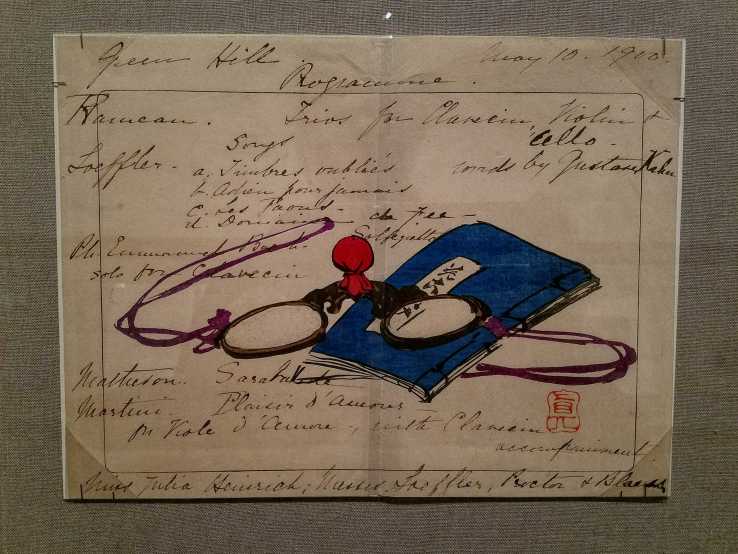 Green Hill May 10. 1900.
Programme.
Rameau. Trios for Clavecin, Violin &
'Cello.
Songs
Loeffler - a. Timbres oubliés words by Gustave Kahn
b. Adieu pour jamais
c. Les Paons -
d. Domaine de Fée -
Ph. Emmanuel Bach - Solfegietto
solo for Clavecin
Mattheson. Sarabande
Martini. Plaisir d'Amour
for Viole d'Amore, with Clavecin
accompaniment
Miss Julia Heinrich, Messrs. Loeffler, Proctor &